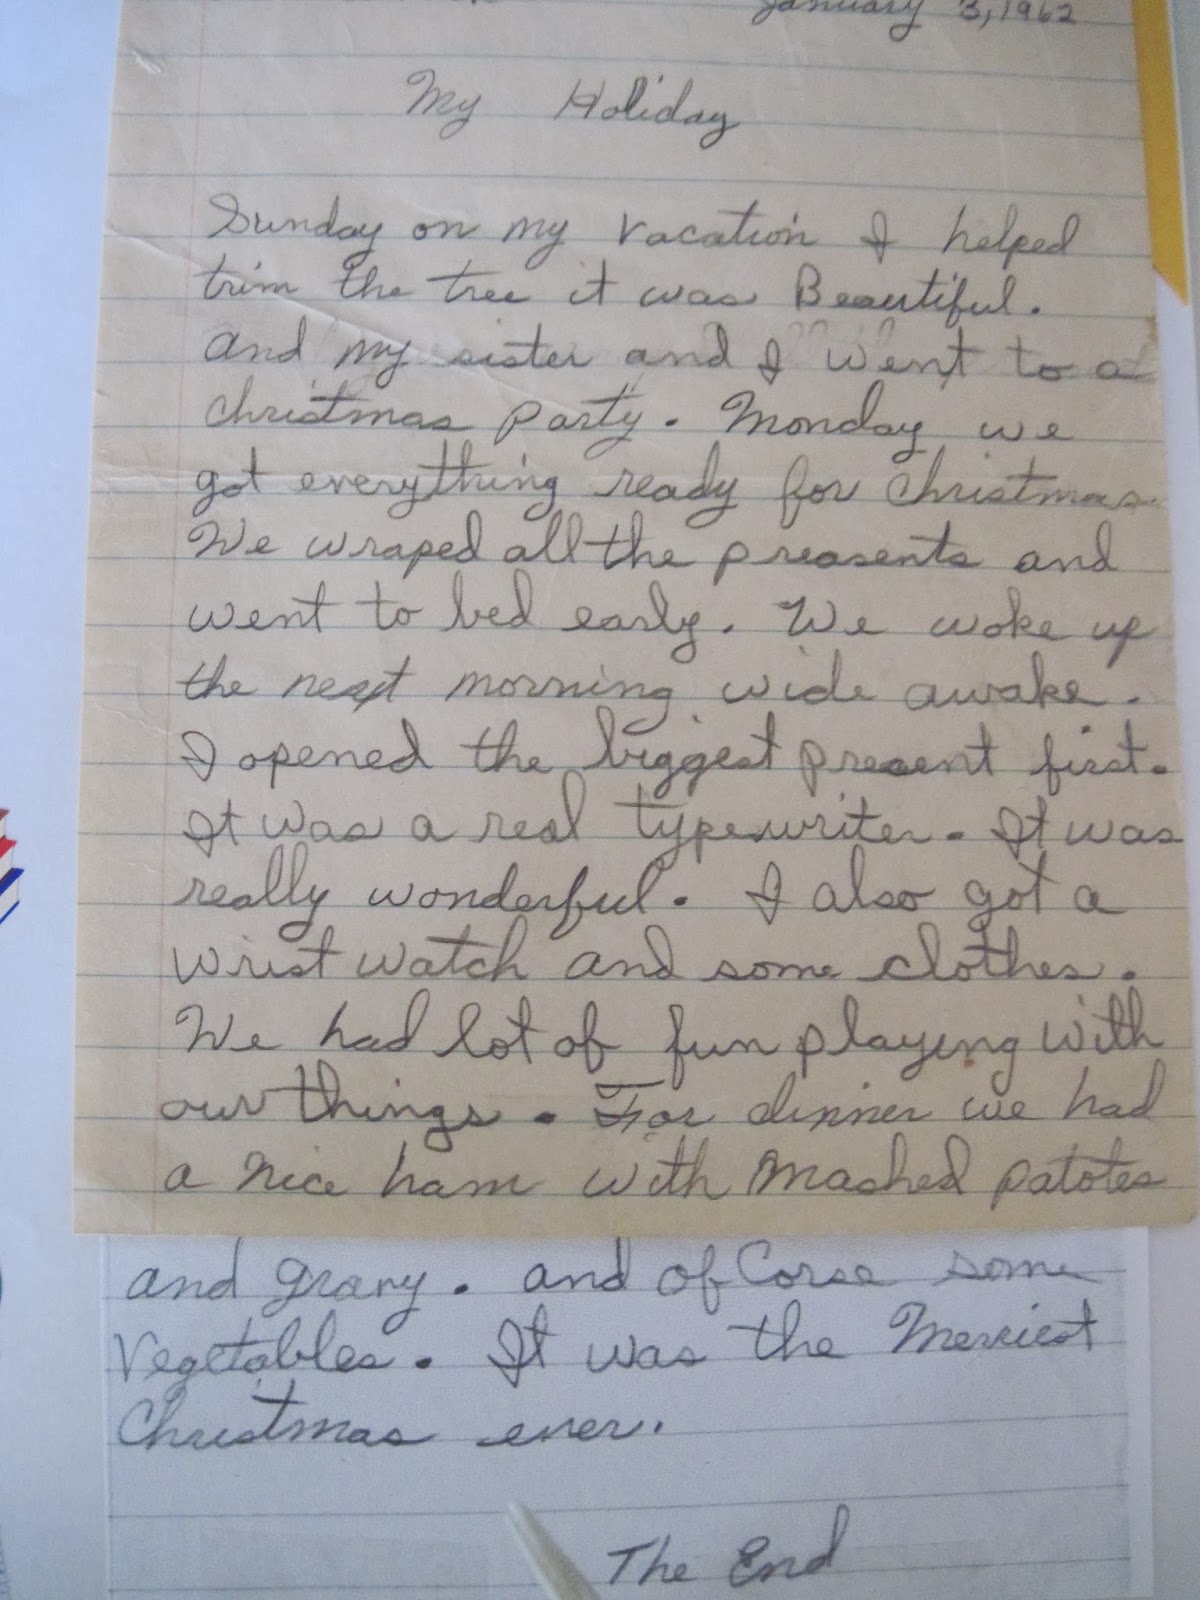 January 3, 1962
My Holiday
Sunday on my vacation I helped
trim the tree it was Beautiful.
and my sister and I went to a
christmas party. Monday we
got everything ready for christmas.
We wraped all the preasents and
went to bed early. We woke up
the next morning wide awake.
I opened the biggest present first.
It was a real typewriter. It was
really wonderful. I also got a
wrist watch and some clothes.
We had lot of fun playing with
our things. For dinner we had
a nice ham with mashed patotes
and gravy. and of Corse some
Vegetables. It was the Merriest
Christmas ever.
The End